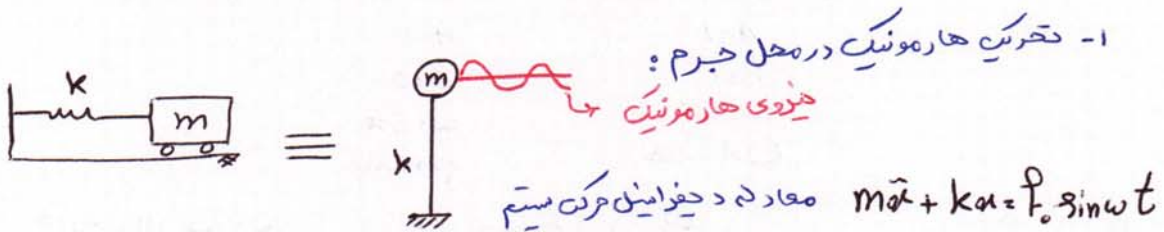 ۱- تحریک هارمونیک در محل جرم :
نیروی هارمونیک
k
m
≡
m
k
معادله دیفرانسیل حرکت سیستم mẍ + kx = P₀ sinωt